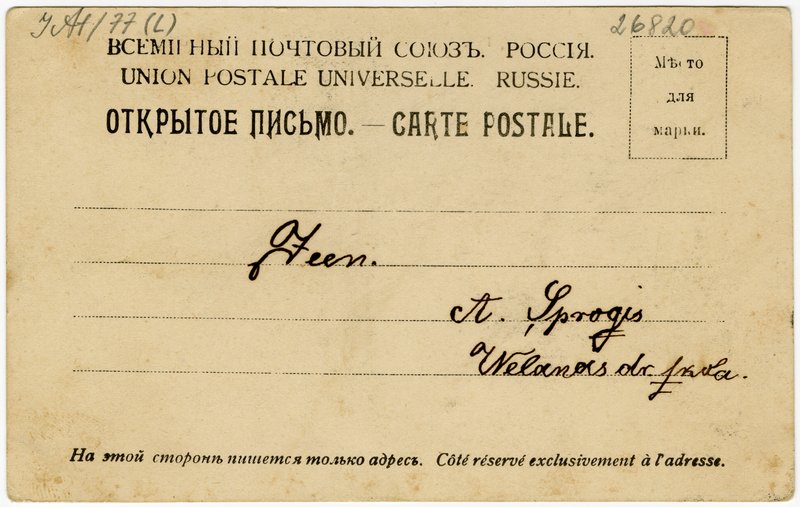 JAI/77 (L)
26820
ВСЕМІРНЫЙ ПОЧТОВЫЙ СОЮЗЪ. РОССІЯ.
UNION POSTALE UNIVERSELLE. RUSSIE.
ОТКРЫТОЕ ПИСЬМО. — CARTE POSTALE.
Мѣсто
для
марки.
Zeen.
A. Sprogis
Welanas dr. skola.
На этой сторонѣ пишется только адресъ. Côté réservé exclusivement à l'adresse.